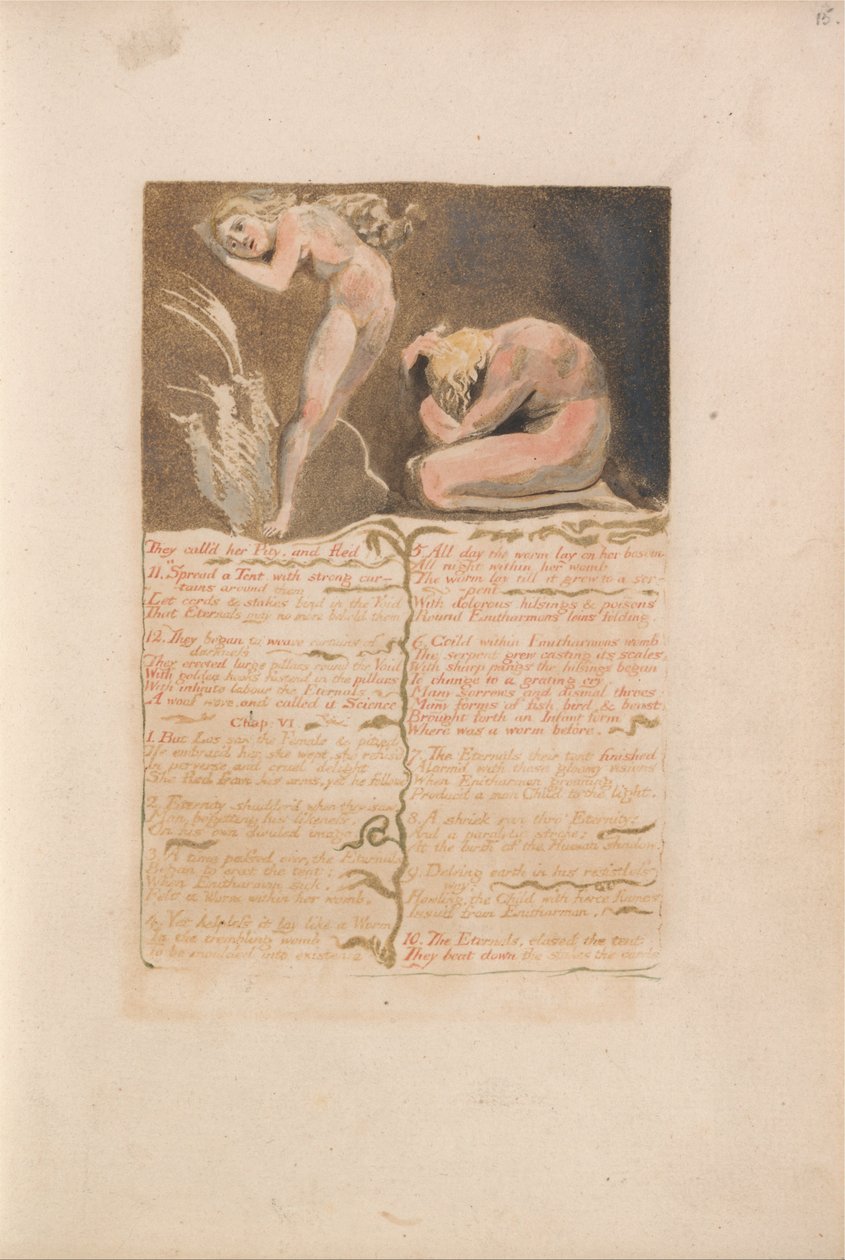 15.
They call'd her Pity, and fled
11. "Spread a Tent, with strong cur-
-tains around them
Let cords & stakes bind in the Void
That Eternals may no more behold them
12. They began to weave curtains of
darkness
They erected large pillars round the Void
With golden hooks fastend in the pillars
With infinite labour the Eternals
A woof wove, and called it Science
Chap VI
1. But Los saw the Female & pitied
He embrac'd her, she wept, she refus'd
In perverse and cruel delight
She fled from his arms, yet he followd
2. Eternity shudder'd when they saw,
Man begetting his likeness,
On his own divided image.
3. A time passed over, the Eternals
Began to erect the tent;
When Enitharmon sick,
Felt a Worm within her womb.
4. Yet helpless it lay like a Worm
In the trembling womb
To be moulded into existence
5. All day the worm lay on her bosom
All night within her womb
The worm lay till it grew to a ser-
-pent
With dolorous hissings & poisons
Round Enitharmons loins folding,
6. Coild within Enitharmons womb
The serpent grew casting its scales,
With sharp pangs the hissings began
To change to a grating cry,
Many sorrows and dismal throes
Many forms of fish, bird & beast,
Brought forth an Infant form
Where was a worm before.
7. The Eternals their tent finished
Alarm'd with these gloomy visions
When Enitharmon groaning
Produc'd a man Child to the light.
8. A shriek ran thro' Eternity:
And a paralytic stroke;
At the birth of the Human shadow.
9. Delving earth in his resistless
way;
Howling, the Child with fierce flames
Issu'd from Enitharmon.
10. The Eternals, closed the tent
They beat down the stakes the cords